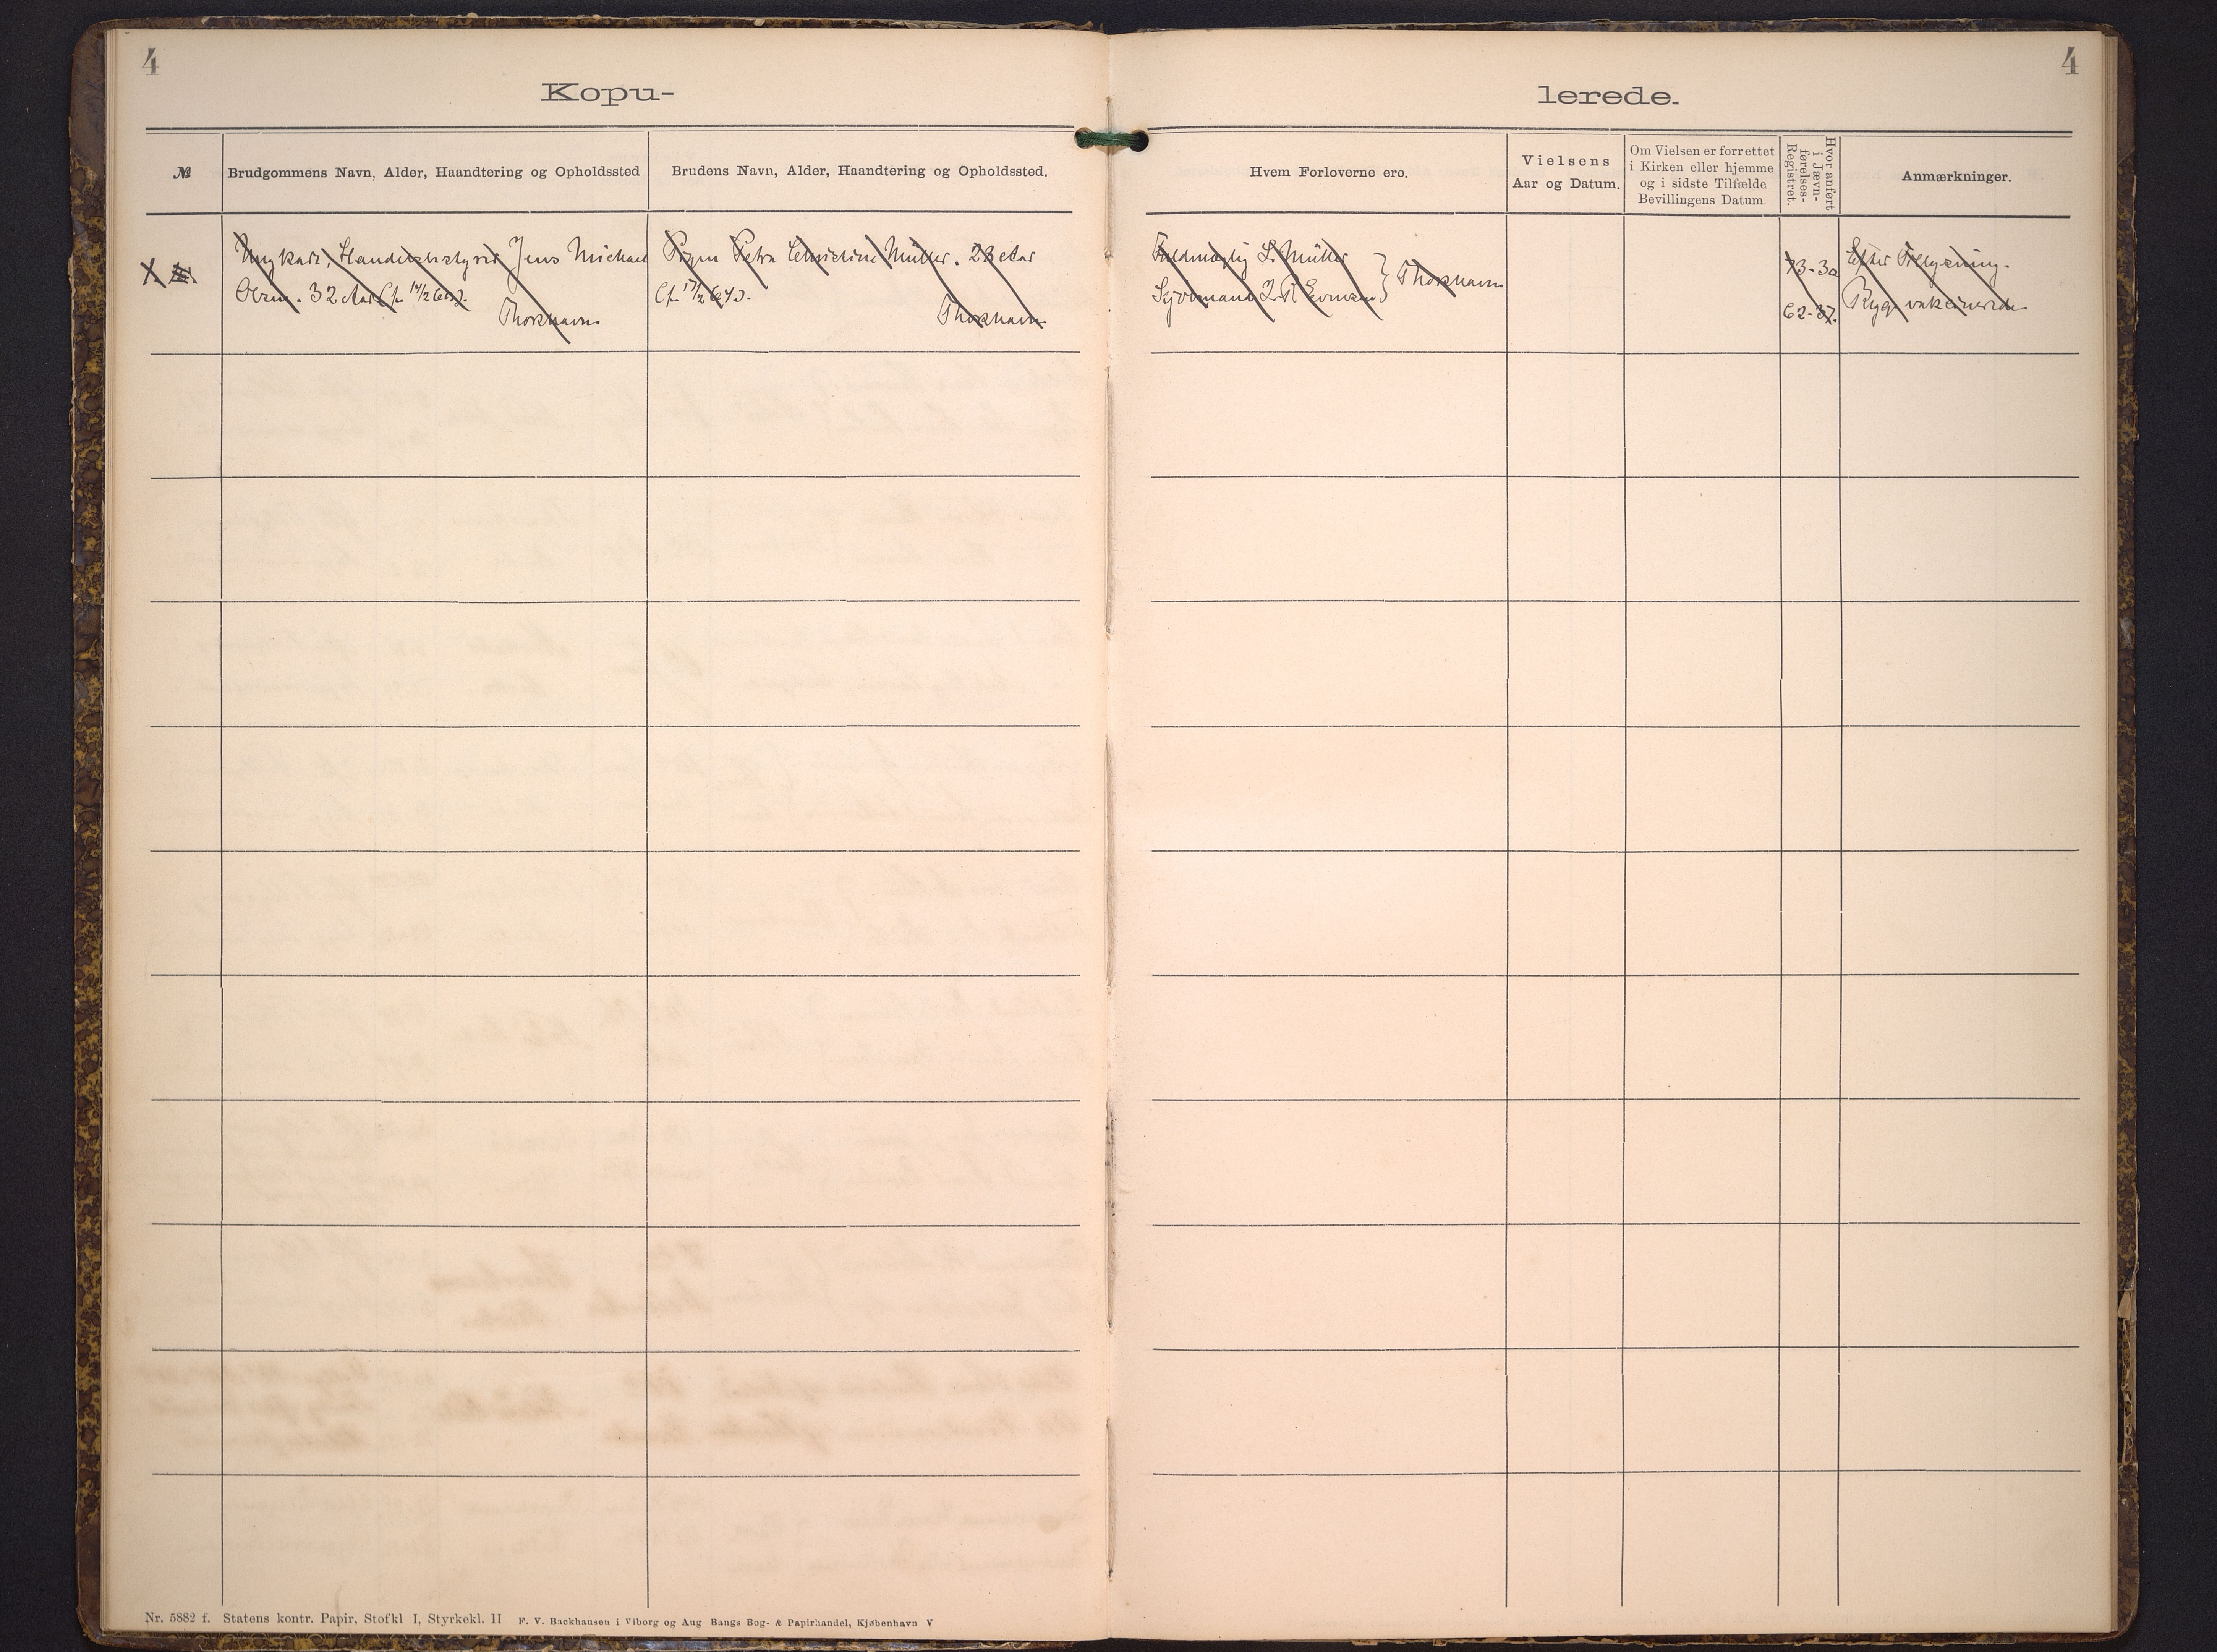 4
4
Kopu-
lerede.
№
Brudgommens Navn, Alder, Haandtering og Opholdssted
Brudens Navn, Alder, Haandtering og Opholdssted.
Hvem Forloverne ere.
Vielsens
Aar og Datum.
Om Vielsen er forrettet
i Kirken eller hjemme
og i sidste Tilfælde
Bevillingens Datum
Hvor anført
i Jævn-
førelses-
Registret.
Anmærkninger.
X
Ungkarl, Handelsbestyrer Jens Michael
32 Aar (f. 14/2
Thorshavn
Pigen Petra Christine Müller. 28 Aar
(f. 17/2 64).
Thorshavn
Fuldmægtig L. Müller
Thorshavn
73-30
62-37.
Efter Tillysning.
Begge vakcinerede
Nr. 5882 f. Statens kontr. Papir, Stofkl I, Styrkekl. II F. V. Backhausen i Viborg og Aug Bangs Bog- & Papirhandel, Kjøbenhavn V